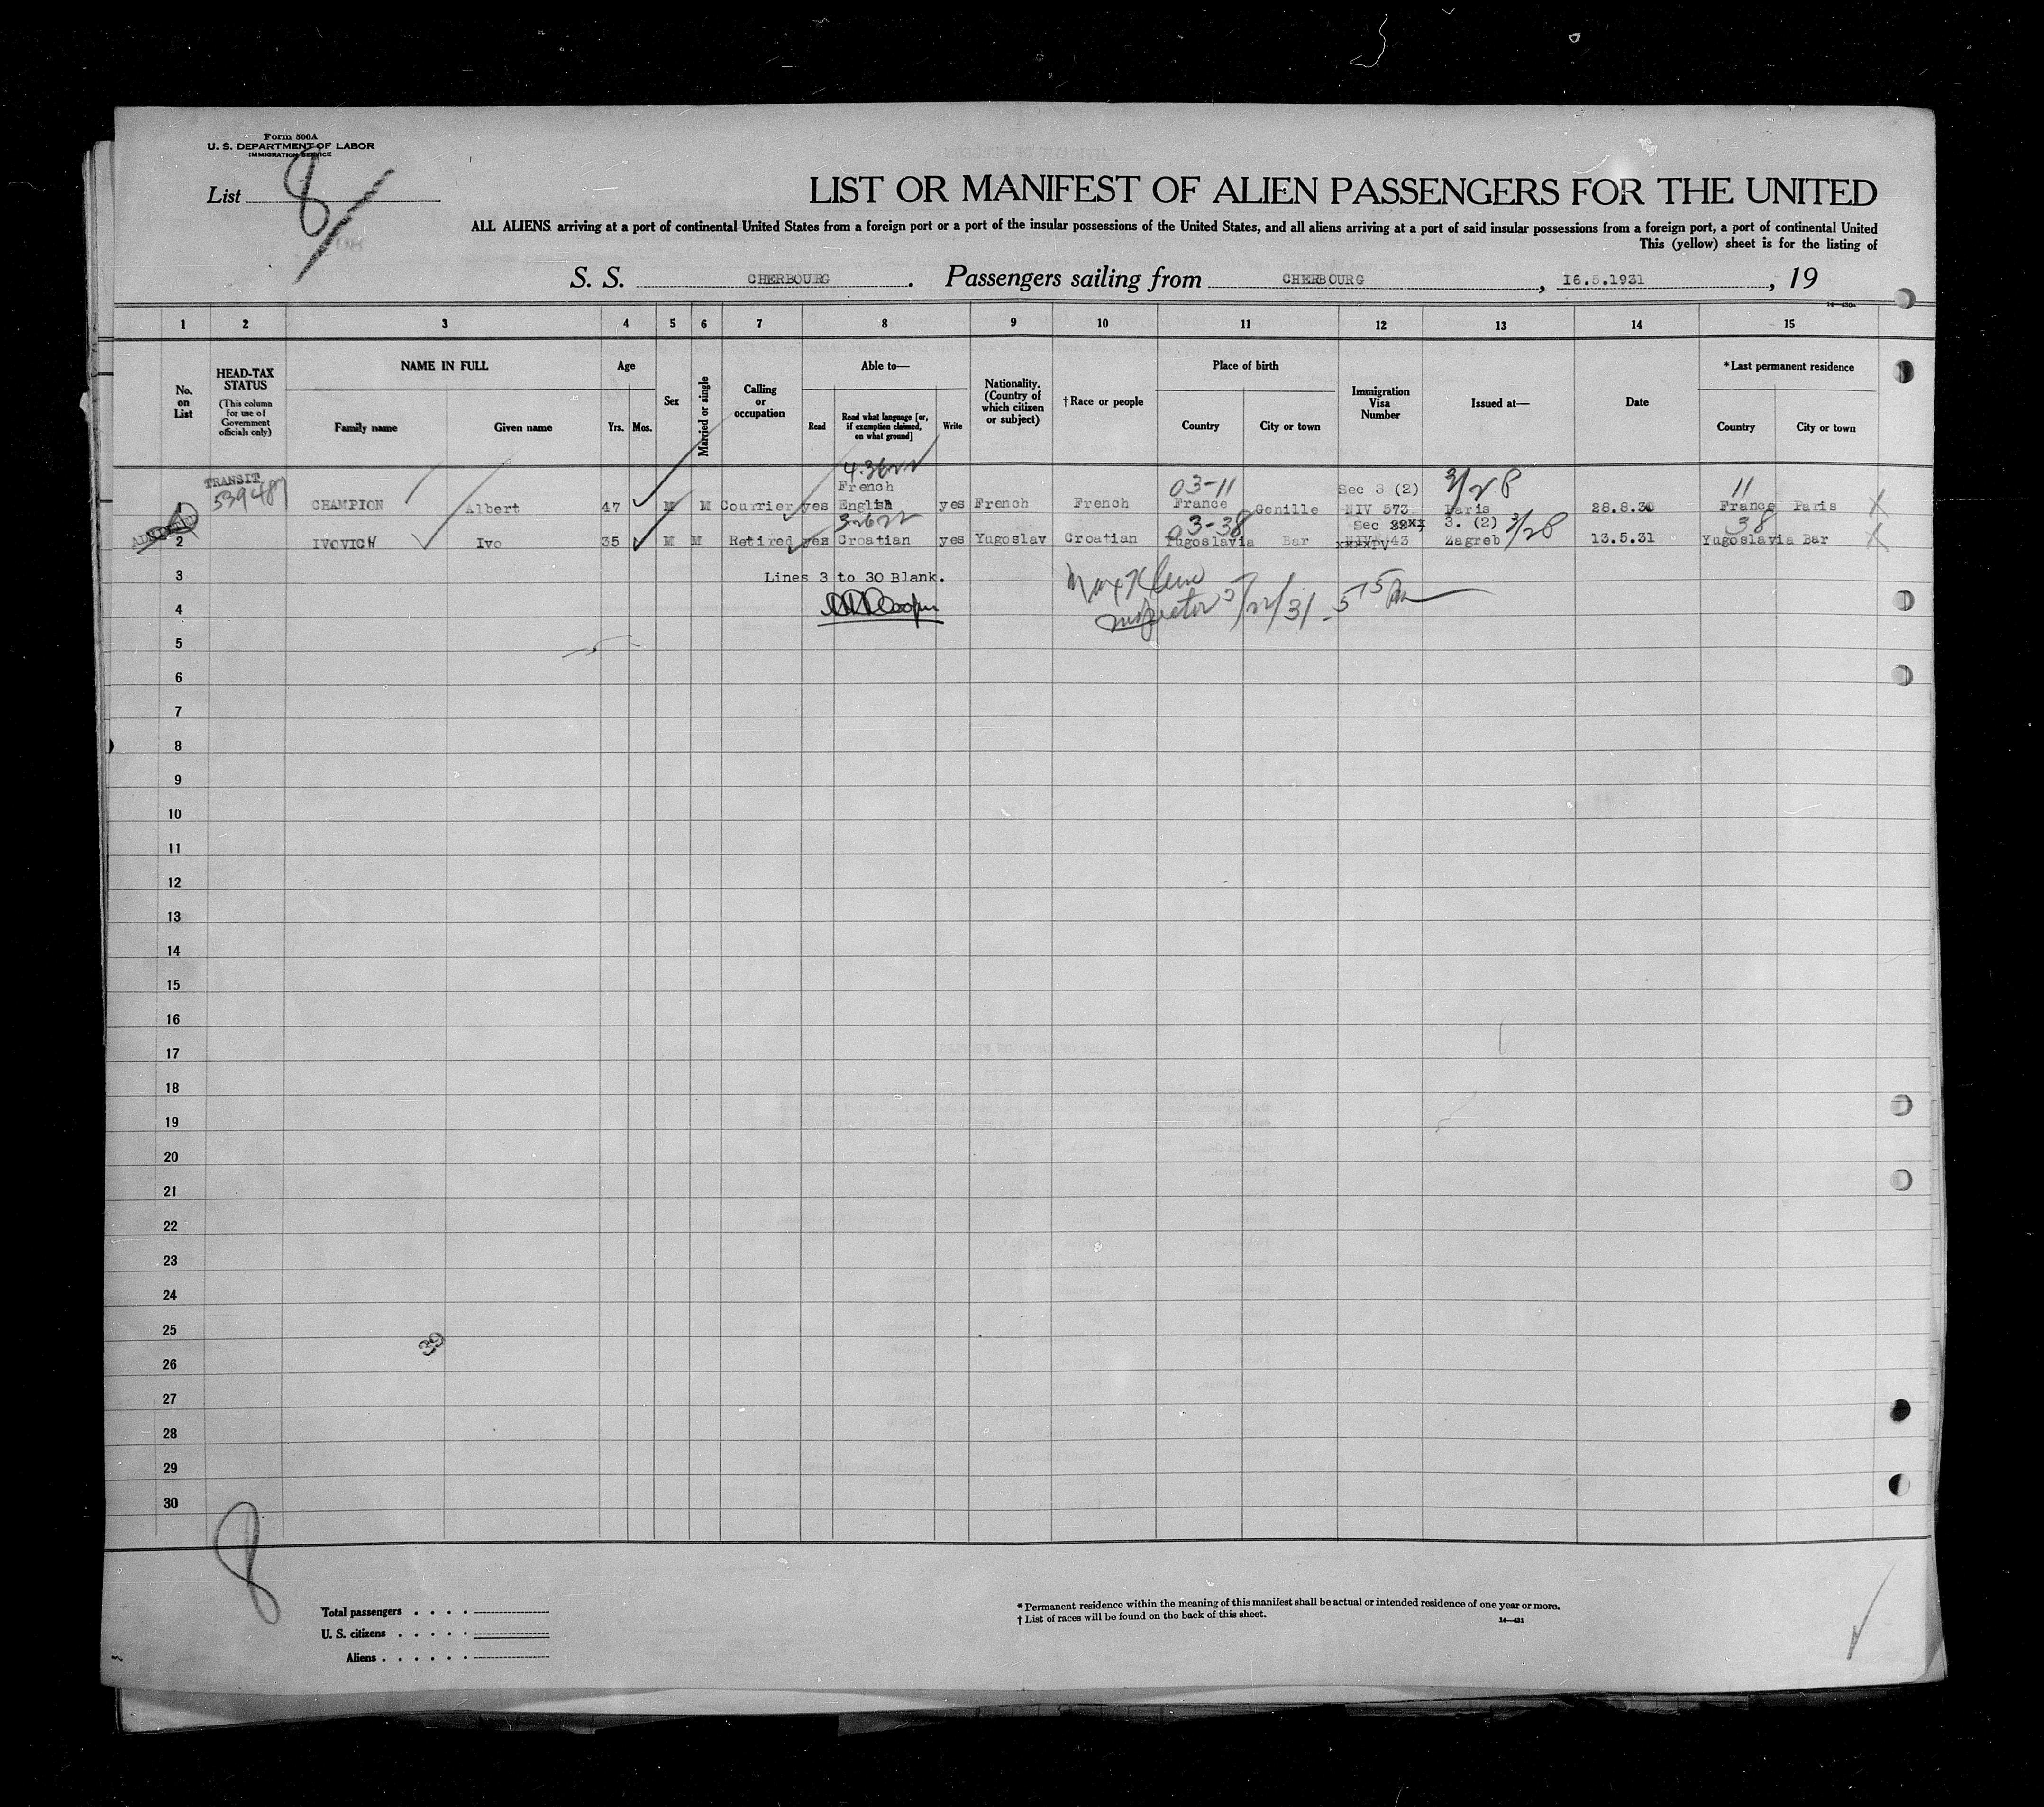 Form 500A
U. S. DEPARTMENT OF LABOR
IMMIGRATION SERVICE
List 8
LIST OR MANIFEST OF ALIEN PASSENGERS FOR THE UNITED
ALL ALIENS arriving at a port of continental United States from a foreign port or a port of the insular possessions of the United States, and all aliens arriving at a port of said insular possessions from a foreign port, a port of continental United
This (yellow) sheet is for the listing of
S. S. CHERBOURG. Passengers sailing from CHERBOURG, 16.5.1931, 19
1 2 3 4 5 6 7 8 9 10 11 12 13 14 15
No. on List
HEAD-TAX STATUS
(This column for use of Government officials only)
NAME IN FULL
Family name Given name
Age
Yrs. Mos.
Sex
Married or single
Calling or occupation
Able to—
Read
Read what language [or, if exemption claimed, on what ground]
Write
Nationality. (Country of which citizen or subject)
†Race or people
Place of birth
Country City or town
Immigration Visa Number
Issued at—
Date
*Last permanent residence
Country City or town
TRANSIT 03-11 Sec 3 (2) 3/28 11
1 539487 CHAMPION Albert 47 M M Courrier yes French English yes French French France Gonille NIV 573 Paris 28.8.30 France Paris
03-38 Sec 3. (2) 3/28 38
2 IVOVICH Ivo 35 M M Retired yes Croatian yes Yugoslav Croatian Yugoslavia Bar 43 Zagreb 13.5.31 Yugoslavia Bar
3 Lines 3 to 30 Blank.
4 Inspector 5/22/31
5
6
7
8
9
10
11
12
13
14
15
16
17
18
19
20
21
22
23
24
25
39
26
27
28
29
30
8
Total passengers . . . .
U. S. citizens . . . . .
Aliens . . . . . .
* Permanent residence within the meaning of this manifest shall be actual or intended residence of one year or more.
† List of races will be found on the back of this sheet.
14—431